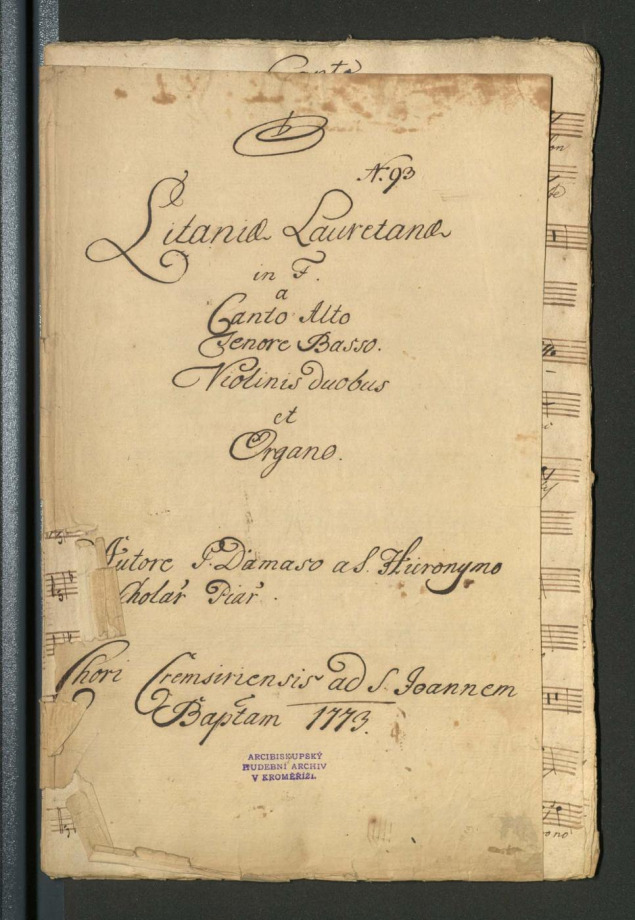 Canto
N. 93
Litaniæ Lauretanæ
in F.
a
Canto Alto
Tenore Basso.
Violinis duobus
et
Organo.
Autore P. Damaso a S. Hieronymo
Scholar Piar.
Chori Cremsiriensis ad S. Joannem
Baptam 1773.
ARCIBISKUPSKÝ
HUDEBNÍ ARCHIV
V KROMĚŘÍŽI.